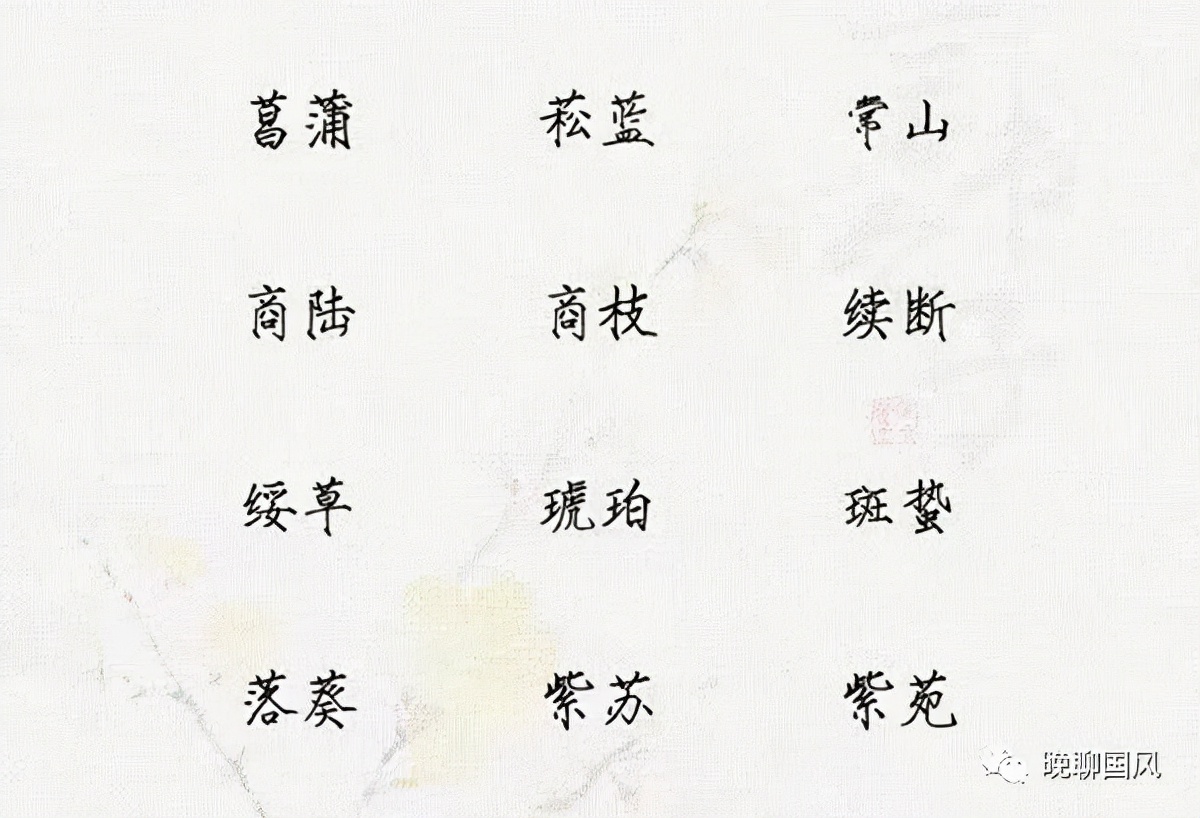 菖蒲 菘蓝 常山
商陆 商枝 续断
绥草 琥珀 斑蛰
落葵 紫苏 紫苑
晚聊国风